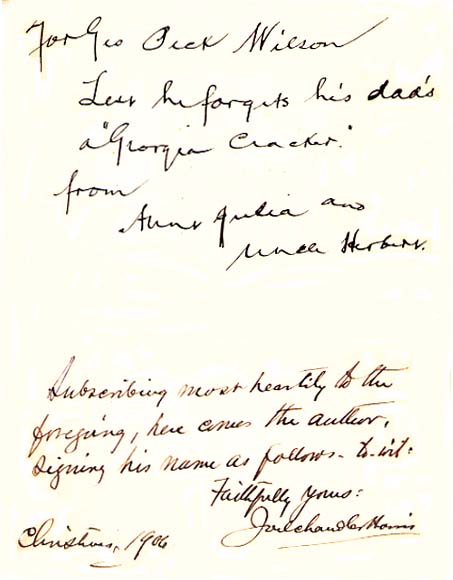 For Geo Peck Wilson
Lest he forgets his dad's
a "Georgia Cracker."
from
Aunt Julia and
Uncle Herbert.
Subscribing most heartily to the
foregoing, here comes the author,
signing his name as follows - to-wit:
Faithfully yours:
Joel Chandler Harris
Christmas, 1906